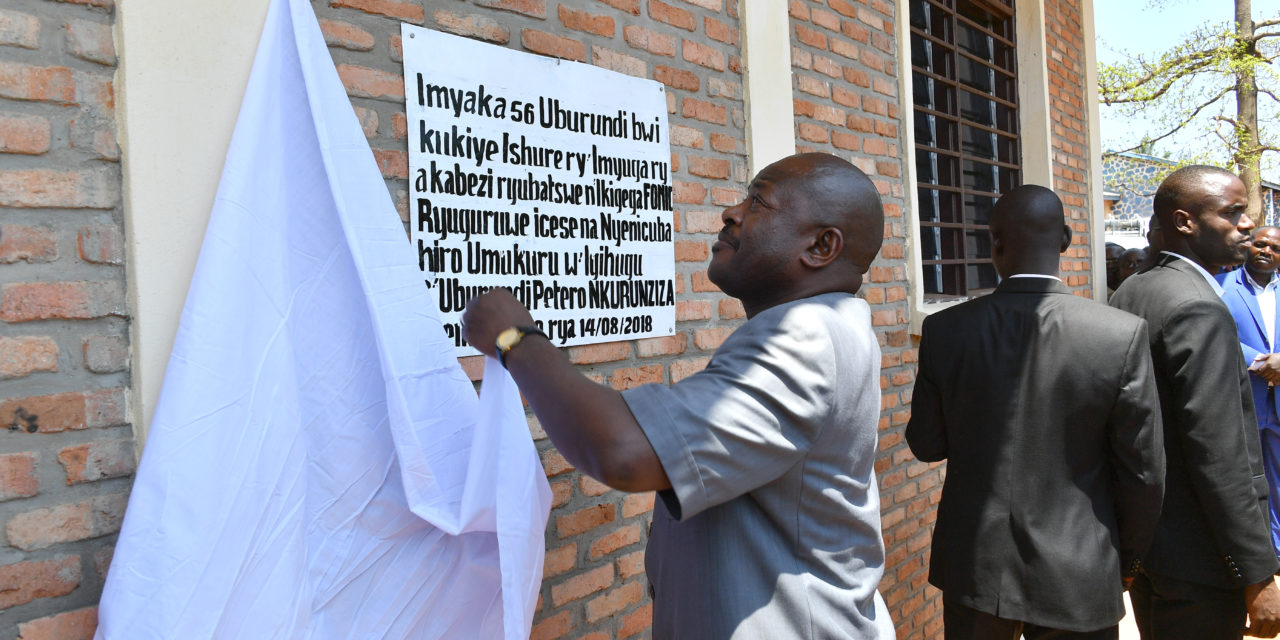 Imyaka 56 Uburundi bwi
kukiye Ishure ry'Imyuga ry
a kabezi ryubatswe n'Ikigega FONIC
Ryuguruwe icese na Nyenicuba
hiro Umukuru w'Igihugu
c'Uburundi Petero NKURUNZIZA
rya 14/08/2018